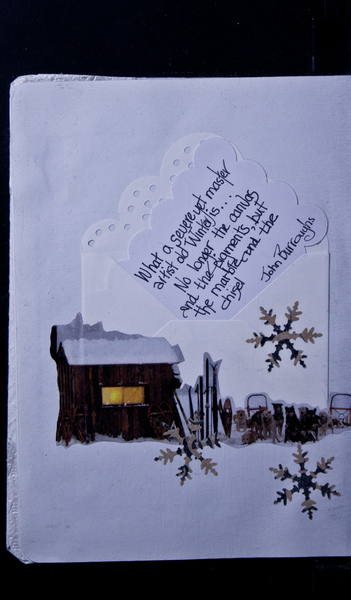 What a severe yet master
artist old Winter is....
No longer the canvas
and the pigments, but
the marble and the
chisel
John Burroughs